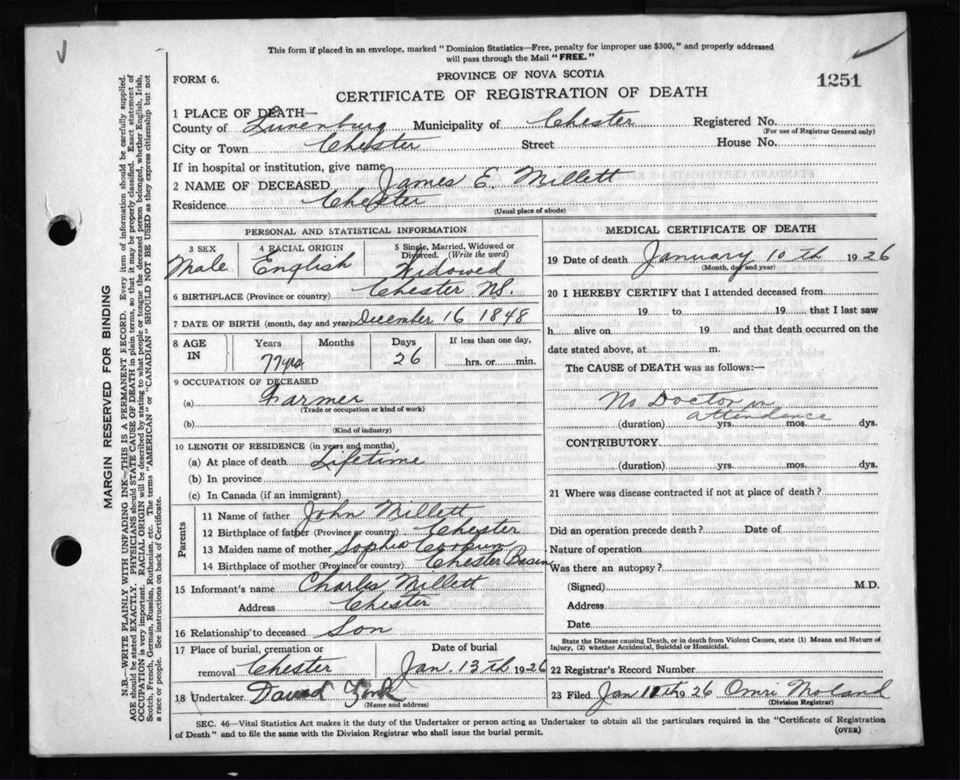 This form if placed in an envelope, marked "Dominion Statistics—Free, penalty for improper use $300," and properly addressed
will pass through the Mail "FREE."
FORM 6.
PROVINCE OF NOVA SCOTIA
1251
CERTIFICATE OF REGISTRATION OF DEATH
1 PLACE OF DEATH—
County of Lunenburg Municipality of Chester Registered No.
(For use of Registrar General only)
City or Town Chester Street House No.
If in hospital or institution, give name
2 NAME OF DECEASED James E. Millett
Residence Chester
(Usual place of abode)
PERSONAL AND STATISTICAL INFORMATION
3 SEX Male
4 RACIAL ORIGIN English
5 Single, Married, Widowed or Divorced. (Write the word) Widowed
6 BIRTHPLACE (Province or country) Chester N.S.
7 DATE OF BIRTH (month, day and year) December 16 1848
8 AGE IN Years Months Days If less than one day,
77 yrs 26 hrs. or min.
9 OCCUPATION OF DECEASED
(a) Farmer
(Trade or occupation or kind of work)
(b)
(Kind of industry)
10 LENGTH OF RESIDENCE (in years and months)
(a) At place of death Lifetime
(b) In province
(c) In Canada (if an immigrant)
Parents
11 Name of father John Millett
12 Birthplace of father (Province or country) Chester
13 Maiden name of mother Sophia
14 Birthplace of mother (Province or country) Chester Basin
15 Informant's name Charles Millett
Address Chester
16 Relationship to deceased Son
17 Place of burial, cremation or removal Chester
Date of burial
Jan. 13th 1926
18 Undertaker David
(Name and address)
MEDICAL CERTIFICATE OF DEATH
19 Date of death January 10th 1926
(Month, day and year)
20 I HEREBY CERTIFY that I attended deceased from
19 to 19 that I last saw
h alive on 19 and that death occurred on the
date stated above, at m.
The CAUSE OF DEATH was as follows:—
No Doctor in attendance
(duration) yrs. mos. dys.
CONTRIBUTORY
(duration) yrs. mos. dys.
21 Where was disease contracted if not at place of death?
Did an operation precede death? Date of
Nature of operation
Was there an autopsy?
(Signed) M.D.
Address
Date
State the Disease causing Death, or in death from Violent Causes, state (1) Means and Nature of
Injury, (2) whether Accidental, Suicidal or Homicidal.
22 Registrar's Record Number
23 Filed Jan 11th 1926 Omri
(Division Registrar)
SEC. 46—Vital Statistics Act makes it the duty of the Undertaker or person acting as Undertaker to obtain all the particulars required in the "Certificate of Registration
of Death" and to file the same with the Division Registrar who shall issue the burial permit.
(OVER)
MARGIN RESERVED FOR BINDING
N.B.—WRITE PLAINLY WITH UNFADING INK—THIS IS A PERMANENT RECORD. Every item of information should be carefully supplied.
AGE should be stated EXACTLY. PHYSICIANS should STATE CAUSE OF DEATH in plain terms, so that it may be properly classified. Exact statement of
OCCUPATION is very important. RACIAL ORIGIN will be described by stating to what people or tongue the deceased person belonged, whether English, Irish,
Scotch, French, German, Russian, Ruthenian, etc. The terms "AMERICAN" or "CANADIAN" SHOULD NOT BE USED as they express citizenship but not
a race or people. See instructions on back of Certificate.